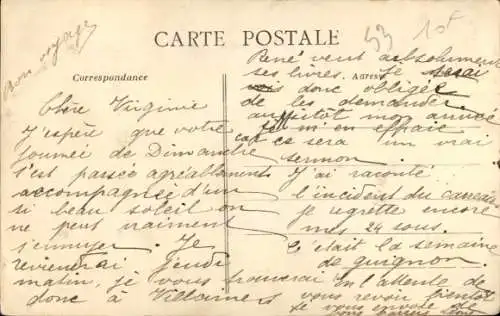 Bon voyage
53
10F
CARTE POSTALE
Correspondance
Adresse
Chère Virginie
J'espère que votre
journée de Dimanche
s'est passée agréablement
accompagnée d'un
si beau soleil on
ne peut vraiment
s'ennuyer. Je
reviendrai jeudi
matin, je vous trouverai
donc à Villainers
René veut absolument
ses livres. Je serai
donc obligée
de les demander
aussitôt mon arrivée
m'en
car ce sera un vrai
sermon.
J'ai raconté
l'incident du
je regrette encore
mes 24 sous.
C'était la semaine
de guignon.
En l'attente de
vous revoir bientôt
je vous envoie de